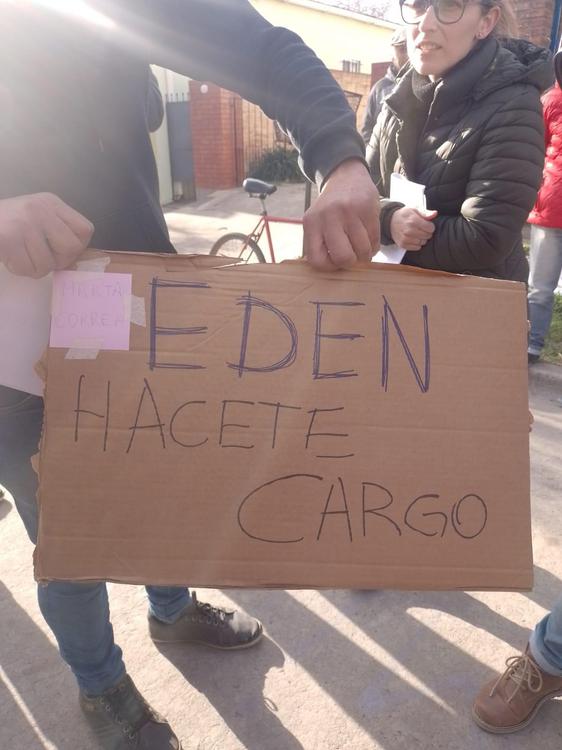 MARTA
CORREA
EDEN
HACETE
CARGO